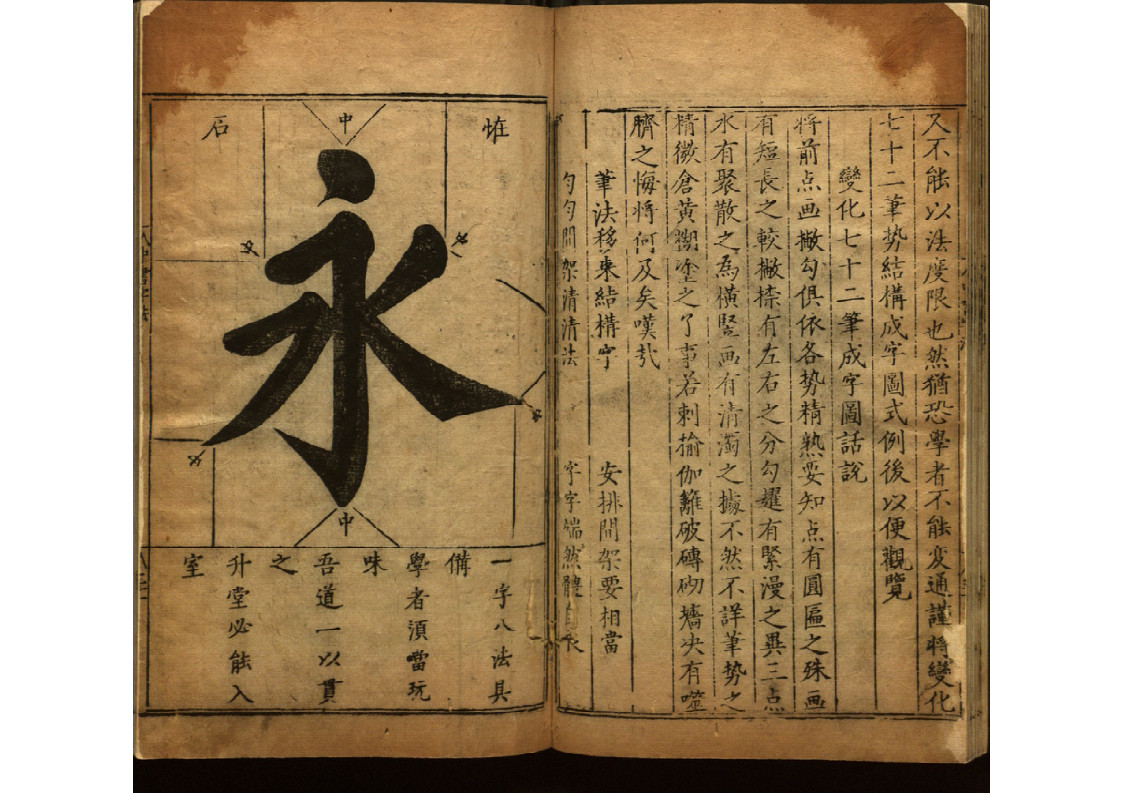 又不能以法度限也然猶恐學者不能变通謹将變化
七十二筆势結構成字圖式例後以便觀覽
變化七十二筆成字圖話説
将前点画撇勾俱依各势精熟要知点有圓匾之殊画
有短長之較撇捺有左右之分勾趯有緊漫之異三点
水有聚散之為橫竪画有清濁之據不然不詳筆势之
精微倉黄糊塗之了事若刺揄伽籬破磚砌墻决有噬
臍之悔将何及矣嘆㢤
筆法移来結構字 安排間架要相當
勻勻間架清清法 字字端然體自長
惟
中
石
永
中
一字八法具
備
學者須當玩
味
吾道一以貫
之
升堂必能入
室